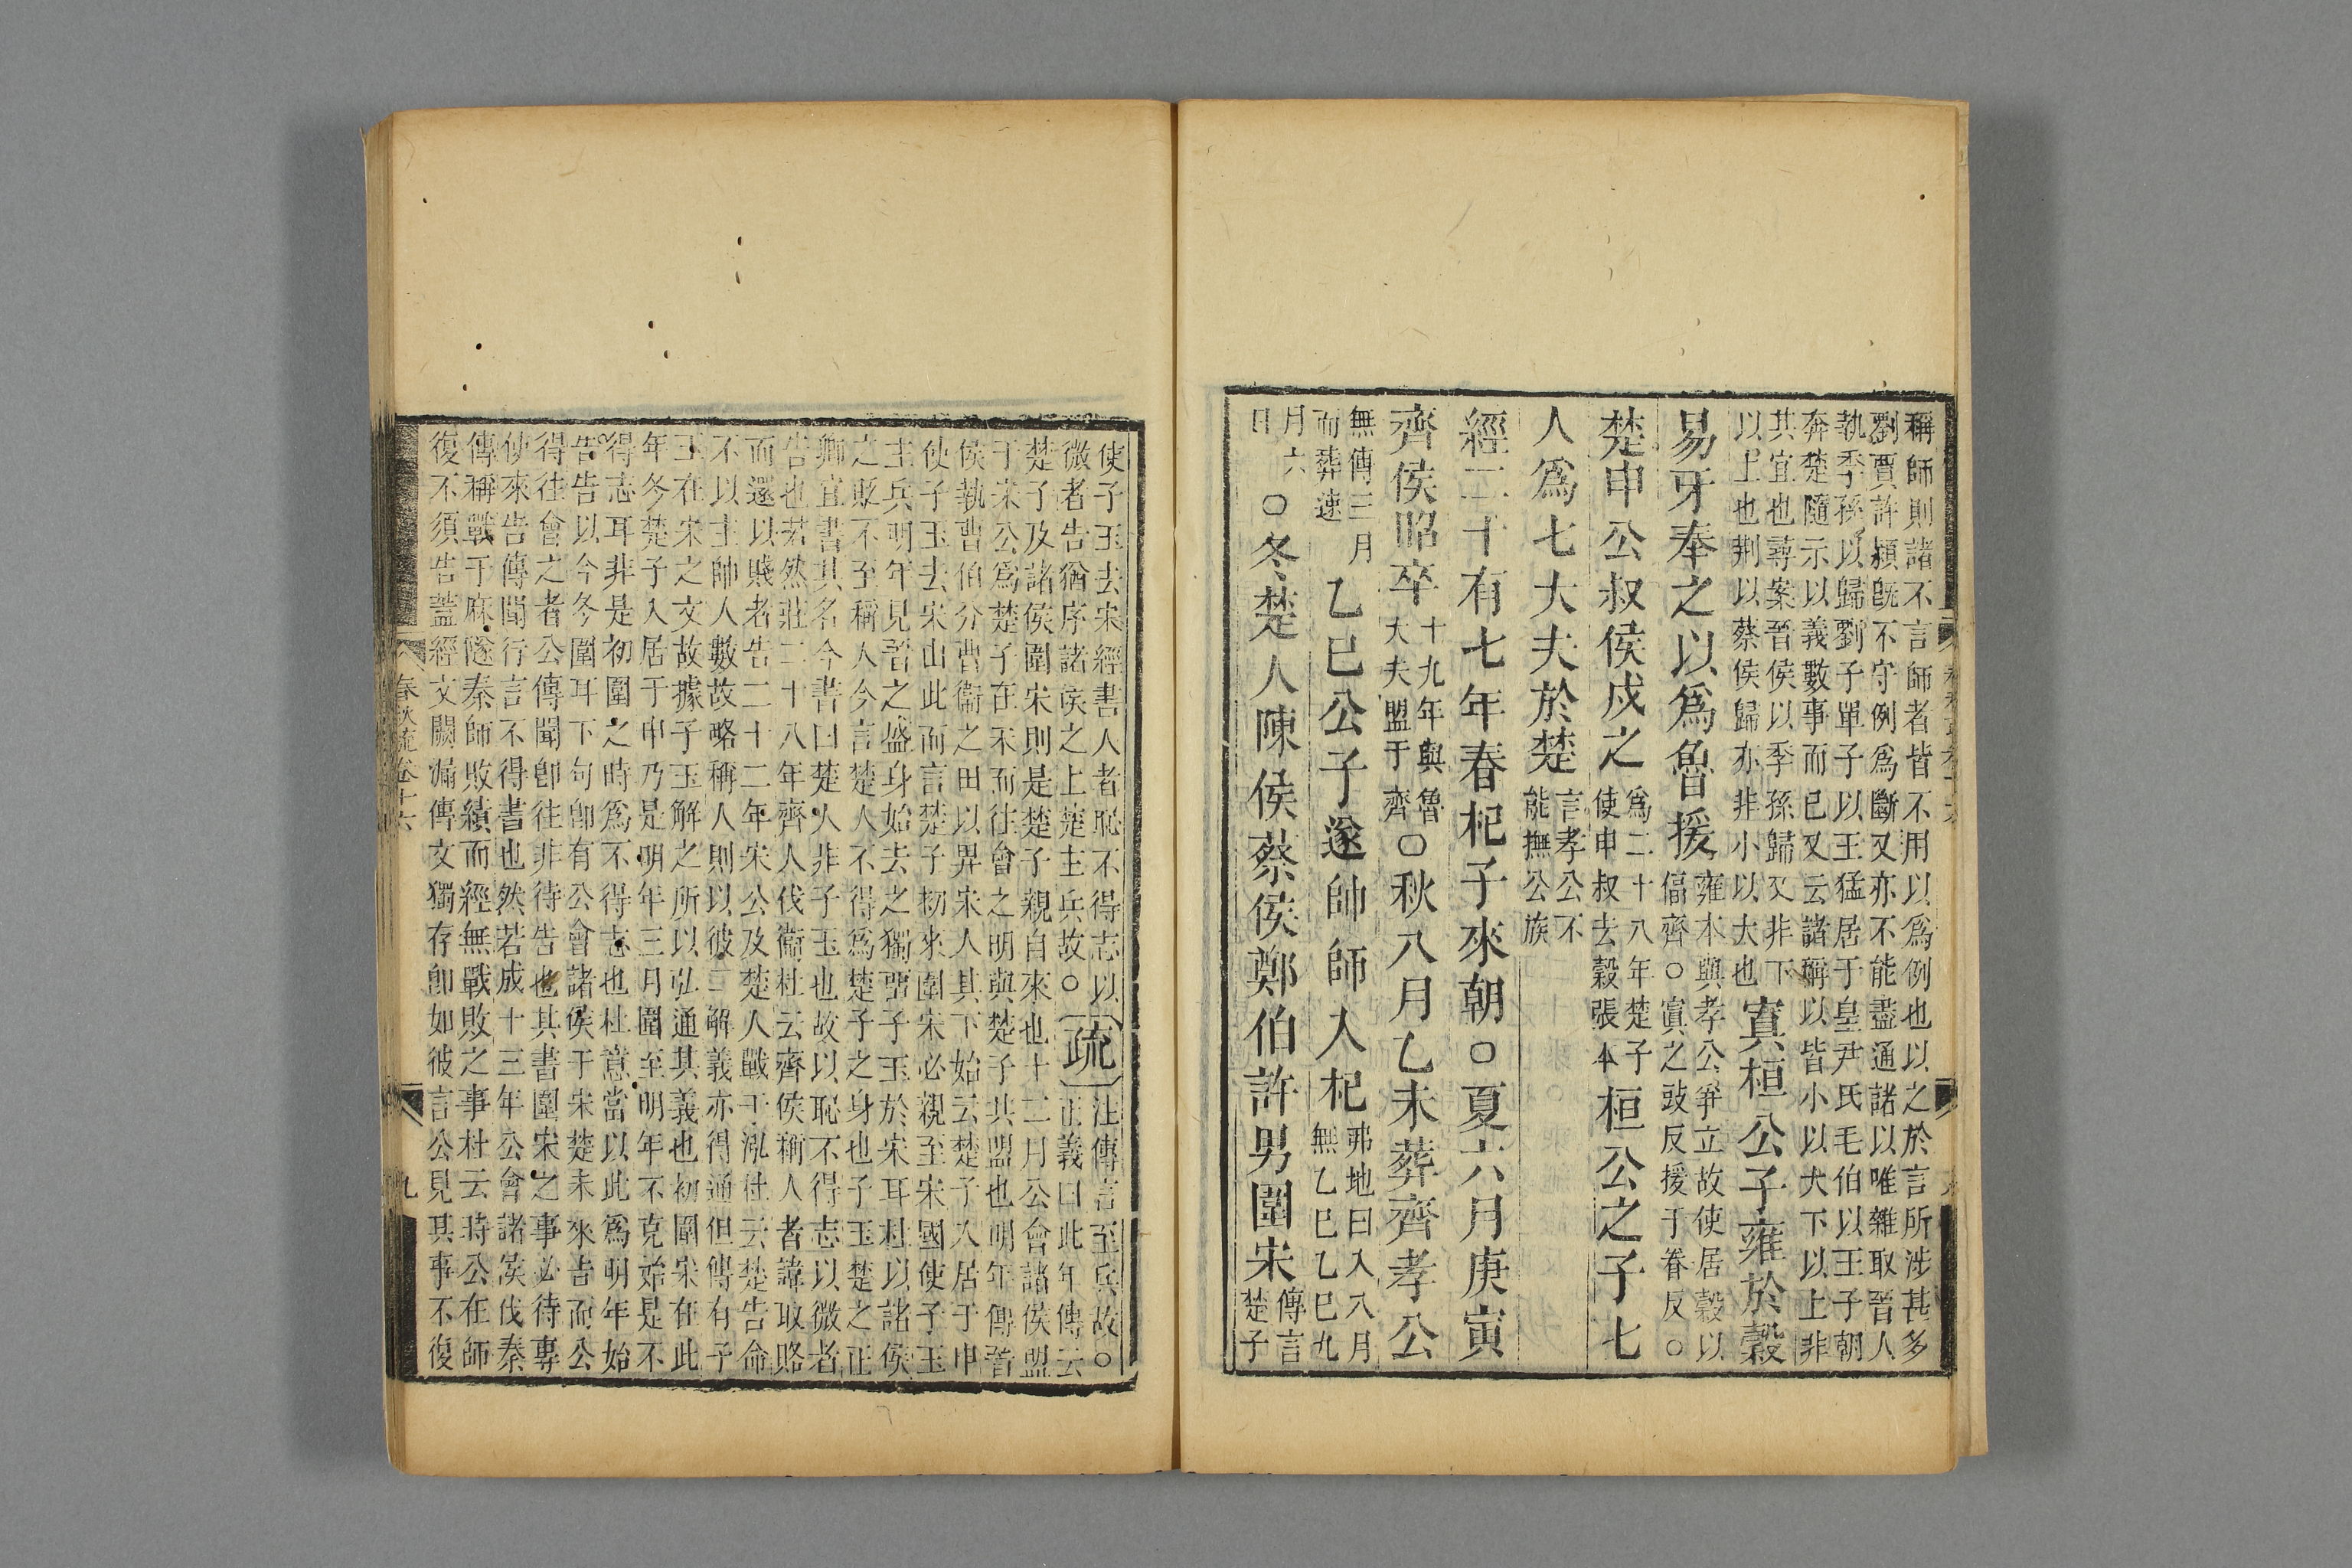 稱師則諸不言師者皆不用以爲例也以之於言所涉甚多
劉賈許潁既不守例爲斷又亦不能盡通諸以唯雜取晉人
執季孫以歸劉子單子以王猛居于皇尹氏毛伯以王子朝
奔楚隨示以義數事而已又云諸稱以皆小以大下以上非
其宜也尋案晉侯以季孫歸又非下
以上也荆以蔡侯歸亦非小以大也
寘桓公子雍於穀
易牙奉之以爲魯援
雍本與孝公爭立故使居穀以
偪齊○寘之豉反援于眷反○
楚申公叔侯戍之
爲二十八年楚子
使申叔去穀張本
桓公之子七
人爲七大夫於楚
言孝公不
能撫公族
經二十有七年春杞子來朝○夏六月庚寅
齊侯昭卒
十九年與魯
大夫盟于齊
○秋八月乙未葬齊孝公
無傳三月
而葬速
乙巳公子遂帥師入杞
弗地曰入八月
無乙巳乙巳九
月六
日
○冬楚人陳侯蔡侯鄭伯許男圍宋
傳言
楚子
使子玉去宋經書人者恥不得志以
微者告猶序諸侯之上楚主兵故○
疏
注傳言至兵故○
正義曰此年傳云
楚子及諸侯圍宋則是楚子親自來也十二月公會諸侯盟
于宋公爲楚子在宋而往會之明與楚子共盟也明年傳晉
侯執曹伯分曹衛之田以畀宋人其下始云楚子入居于申
使子玉去宋由此而言楚子初來圍宋必親至宋國使子玉
主兵明年見晉之盛身始去之獨留子玉於宋耳杜以諸侯
之貶不至稱人今言楚人不得爲楚子之身也子玉楚之正
卿宜書其名今書曰楚人非子玉也故以恥不得志以微者
告也若然莊二十八年齊人伐衛杜云齊侯稱人者諱取賂
而還以賤者告二十二年宋公及楚人戰于泓杜云楚告命
不以主帥人數故略稱人則以彼二解義亦得通但傳有子
玉在宋之文故據子玉解之所以弘通其義也初圍宋在此
年冬楚子入居于申乃是明年三月圍至明年不克始是不
得志耳非是初圍之時爲不得志也杜意當以此爲明年始
告告以今冬圍耳下句卽有公會諸侯于宋楚未來告而公
得往會之者公傳聞卽往非待告也其書圍宋之事必待專
使來告傳聞行言不得書也然若成十三年公會諸侯伐秦
傳稱戰于麻隧秦師敗績而經無戰敗之事杜云時公在師
復不須告蓋經文闕漏傳文獨存卽如彼言公見其事不復
春秋疏卷十六
九